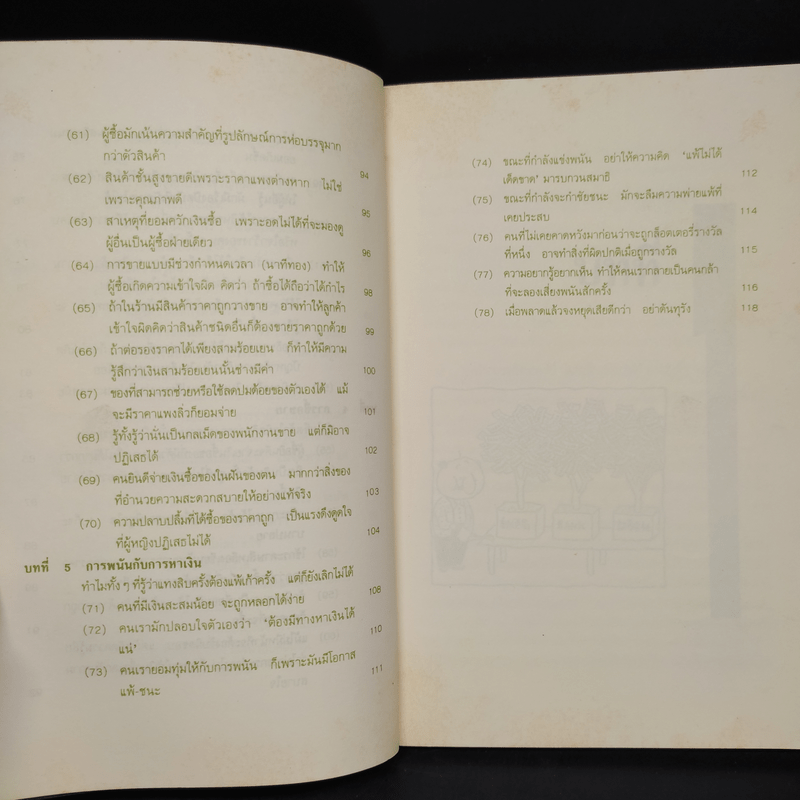 (61) ผู้ซื้อมักเน้นความสำคัญที่รูปลักษณ์การห่อบรรจุมาก
กว่าตัวสินค้า 94
(62) สินค้าชั้นสูงขายดีเพราะราคาแพงต่างหาก ไม่ใช่
เพราะคุณภาพดี 95
(63) สาเหตุที่ยอมควักเงินซื้อ เพราะอดไม่ได้ที่จะมองดู
ผู้อื่นเป็นผู้ซื้อฝ่ายเดียว 96
(64) การขายแบบมีช่วงกำหนดเวลา (นาทีทอง) ทำให้
ผู้ซื้อเกิดความเข้าใจผิด คิดว่า ถ้าซื้อได้ถือว่าได้กำไร 98
(65) ถ้าในร้านมีสินค้าราคาถูกวางขาย อาจทำให้ลูกค้า
เข้าใจผิดคิดว่าสินค้าชนิดอื่นก็ต้องขายราคาถูกด้วย 99
(66) ถ้าต่อรองราคาได้เพียงสามร้อยเยน ก็ทำให้มีความ
รู้สึกว่าเงินสามร้อยเยนนั้นช่างมีค่า 100
(67) ของที่สามารถช่วยหรือใช้ลดปมด้อยของตัวเองได้ แม้
จะมีราคาแพงลิ่วก็ยอมจ่าย 101
(68) รู้ทั้งรู้ว่านั่นเป็นกลเม็ดของพนักงานขาย แต่ก็มิอาจ
ปฏิเสธได้ 102
(69) คนยินดีจ่ายเงินซื้อของในฝันของตน มากกว่าสิ่งของ
ที่อำนวยความสะดวกสบายให้อย่างแท้จริง 103
(70) ความปลาบปลื้มที่ได้ซื้อของราคาถูก เป็นแรงดึงดูดใจ
ที่ผู้หญิงปฏิเสธไม่ได้ 104
บทที่ 5 การพนันกับการหาเงิน
ทำไมทั้ง ๆ ที่รู้ว่าแทงสิบครั้งต้องแพ้เก้าครั้ง แต่ก็ยังเลิกไม่ได้
(71) คนที่มีเงินสะสมน้อย จะถูกหลอกได้ง่าย 108
(72) คนเรามักปลอบใจตัวเองว่า 'ต้องมีทางหาเงินได้
แน่' 110
(73) คนเรายอมทุ่มให้กับการพนัน ก็เพราะมันมีโอกาส
แพ้-ชนะ 111
(74) ขณะที่กำลังแข่งพนัน อย่าให้ความคิด 'แพ้ไม่ได้
เด็ดขาด' มารบกวนสมาธิ 112
(75) ขณะที่กำลังจะกำชัยชนะ มักจะลืมความพ่ายแพ้ที่
เคยประสบ 114
(76) คนที่ไม่เคยคาดหวังมาก่อนว่าจะถูกล็อตเตอรี่รางวัล
ที่หนึ่ง อาจทำสิ่งที่ผิดปกติเมื่อถูกรางวัล 115
(77) ความอยากรู้อยากเห็น ทำให้คนเรากลายเป็นคนกล้า
ที่จะลองเสี่ยงพนันสักครั้ง 116
(78) เมื่อพลาดแล้วจงหยุดเสียดีกว่า อย่าดันทุรัง 118